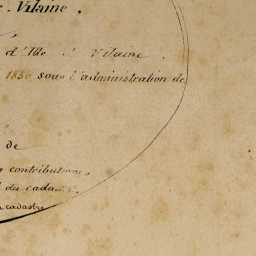 Vilaine.
d'Ille & Vilaine
1830 sous l'administration de
de
contributions
du cadastre
cadastre